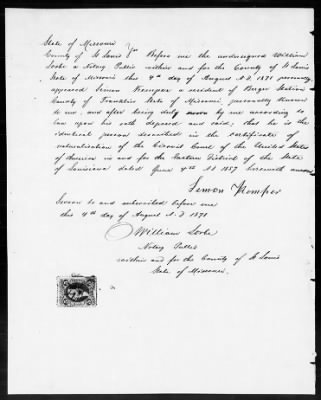 State of Missouri
County of St Louis } ss Before me the undersigned William
Lorke a Notary Public within and for the County of St Louis
State of Missouri this 4th day of August A.D. 1871 personally
appeared Simon Kemper a resident of Burger Station
County of Franklin State of Missouri personally known
to me, and after being duly sworn by me according to
law upon his oath deposed and said, that he is the
identical person described in the certificate of
naturalisation of the Circuit Court of the United States
of America in and for the Eastern District of the State
of Louisiana dated June AD 1857 herewith
Semon Kemper
Sworn to and subscribed before me
this 4th day of August A.D 1871
William Lorke
Notary Public
within and for the County of St Louis
State of Missouri.